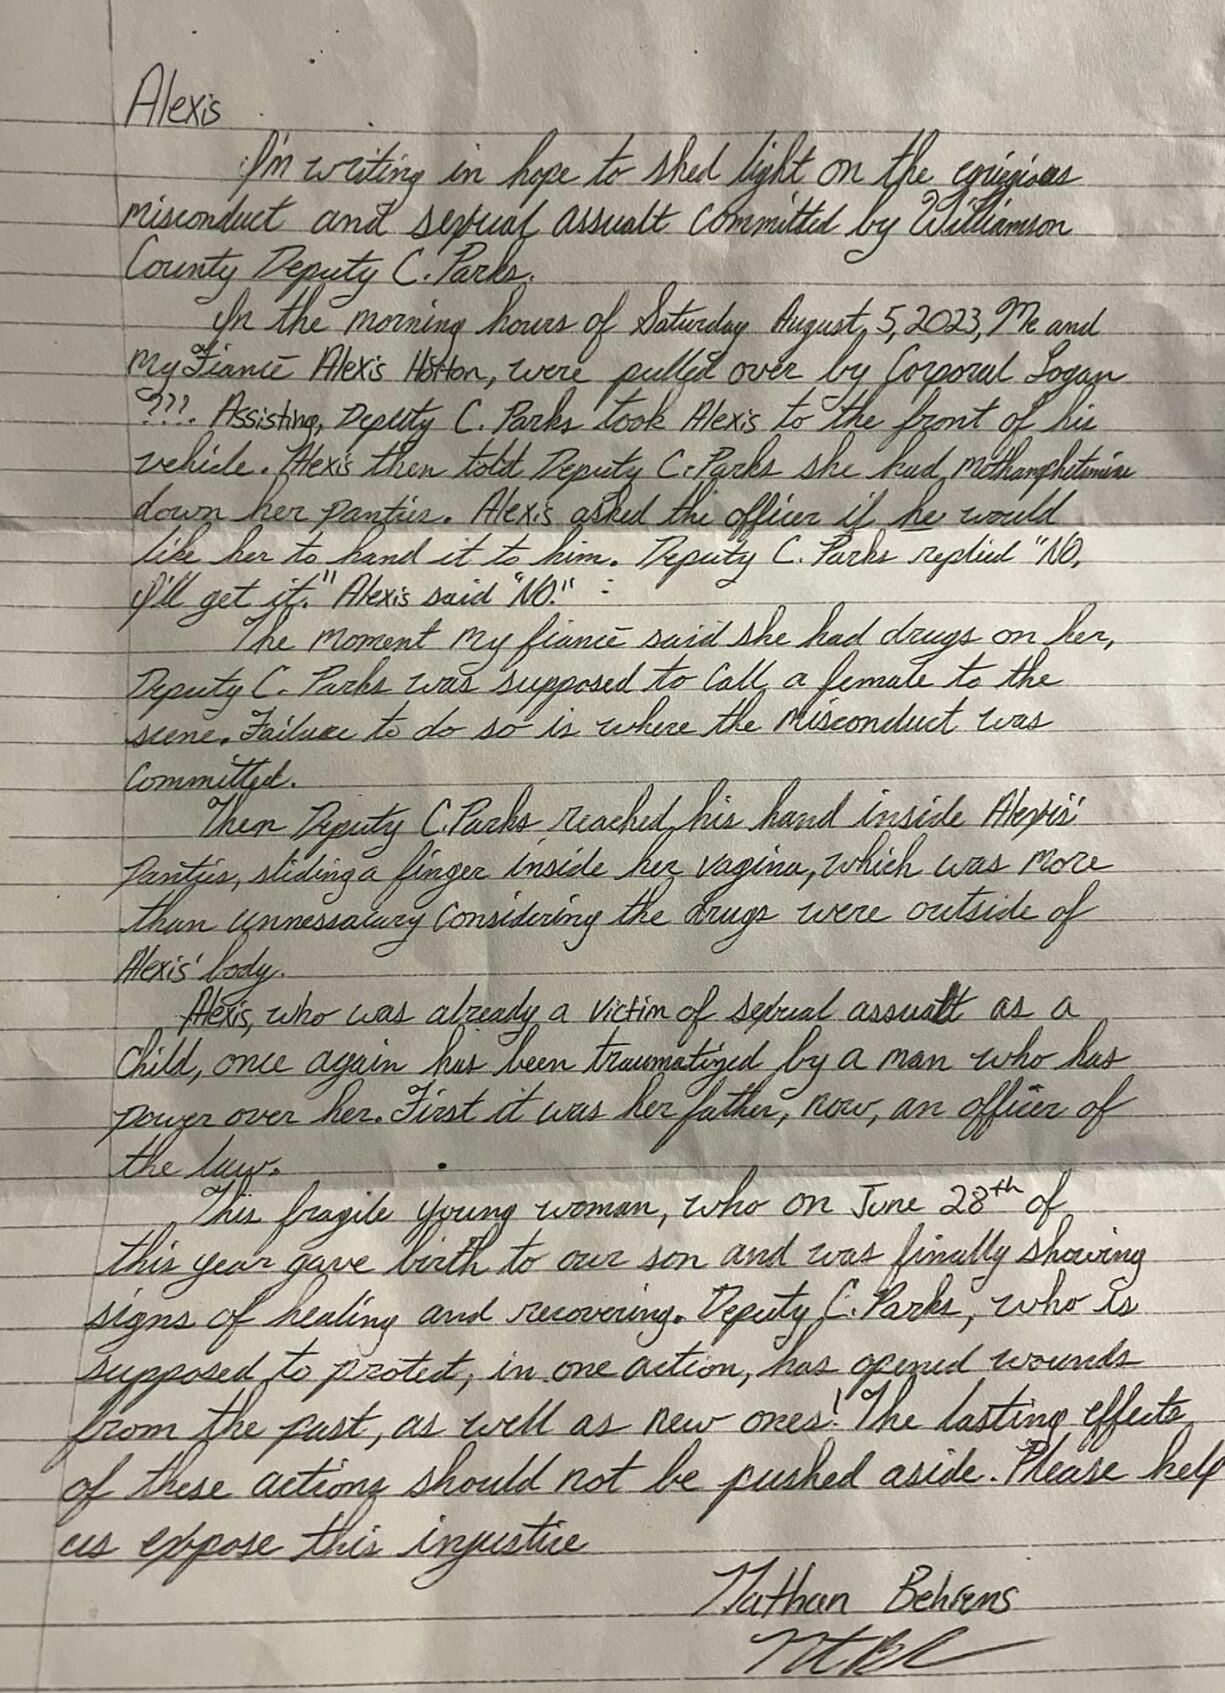 Alexis
I'm writing in hope to shed light on the egrigious
misconduct and sexual assualt committed by Williamson
County Deputy C. Parks.
In the morning hours of Saturday August, 5, 2023, Me and
My Fiancé Alexis Hotton, were pulled over by Corporal Logan
???. Assisting, Deputy C. Parks took Alexis to the front of his
vehicle. Alexis then told Deputy C. Parks she had mothamphetimine
down her panties. Alexis asked the officer if he would
like her to hand it to him. Deputy C. Parks replied "NO,
I'll get it." Alexis said "NO."
The moment my fiancé said she had drugs on her,
Deputy C. Parks was supposed to call a female to the
scene. Failure to do so is where the misconduct was
committed.
Then Deputy C. Parks reached his hand inside Alexis'
panties, sliding a finger inside her vagina, which was more
than unnessacary considering the drugs were outside of
Alexis' body.
Alexis, who was already a victim of sexual assualt as a
child, once again has been traumatized by a man who has
power over her. First it was her father, now, an officer of
the law.
This fragile young woman, who on June 28th of
this year gave birth to our son and was finally showing
signs of healing and recovering. Deputy C. Parks, who is
supposed to protect, in one action, has opened wounds
from the past, as well as new ones! The lasting effects
of these actions should not be pushed aside. Please help
us expose this injustice
Nathan Behrens